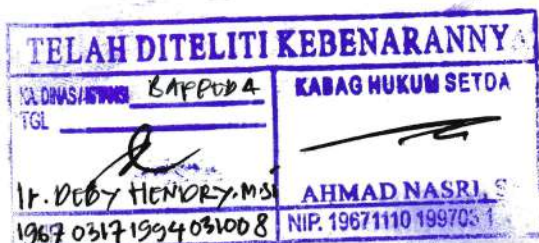 TELAH DITELITI KEBENARANNYA
KA. DINAS/INSTANSI BAPPEDA
TGL
Ir. DEDY HENDRY. M.Si
19670317 199403 1008
KABAG HUKUM SETDA
AHMAD NASRI, S
NIP. 19671110 199703 1